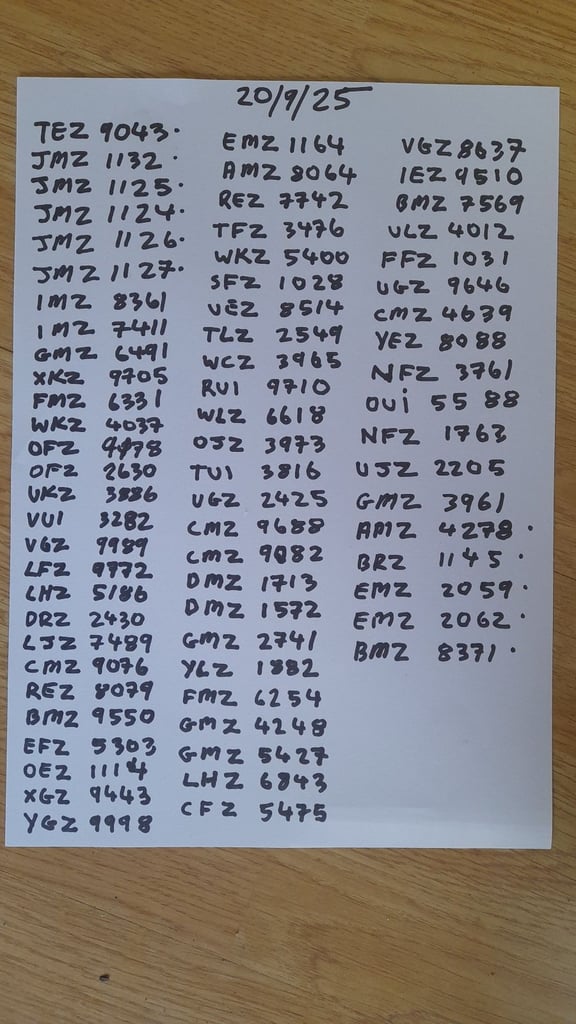 20/9/25
TEZ 9043.
JMZ 1132.
JMZ 1125.
JMZ 1124.
JMZ 1126.
JMZ 1127.
IMZ 8361
IMZ 7411
GMZ 6491
XKZ 9705
FMZ 6331
WKZ 4037
OFZ
OFZ 2630
UKZ 3886
VUI 3282
VGZ 9989
LFZ 9772
LHZ 5186
DRZ 2430
LJZ 7489
CMZ 9076
REZ 8079
BMZ 9550
EFZ 5303
OEZ 1114
XGZ 9443
YGZ 9998
EMZ 1164
AMZ 8064
REZ 7742
TFZ 3476
WKZ 5400
SFZ 1028
UEZ 8514
TLZ 2549
WCZ 3965
RUI 9710
WLZ 6618
OJZ 3973
TUI 3816
UGZ 2425
CMZ 9688
CMZ 9082
DMZ 1713
DMZ 1572
GMZ 2741
YLZ 1882
FMZ 6254
GMZ 4248
GMZ 5427
LHZ 6843
CFZ 5475
VGZ 8637
IEZ 9510
BMZ 7569
ULZ 4012
FFZ 1031
UGZ 9646
CMZ 4639
YEZ 8088
NFZ 3761
OUi 55 88
NFZ 1763
UJZ 2205
GMZ 3961
AMZ 4278.
BRZ 1145.
EMZ 2059.
EMZ 2062.
BMZ 8371.